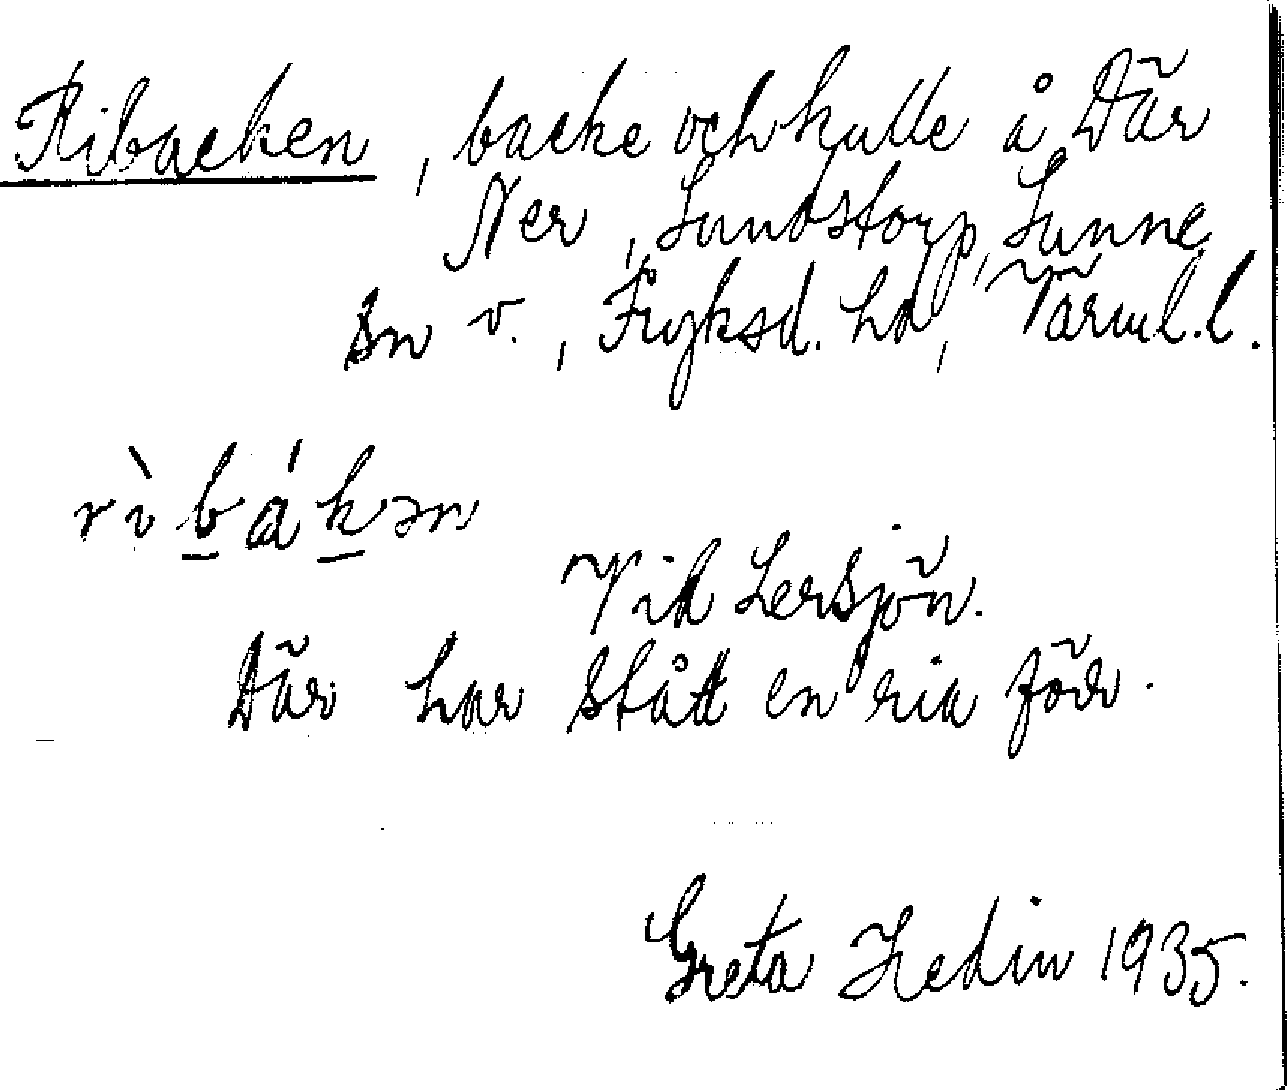 Ribacken, backe och kulle å Där
Ner, Sundstorp, Sunne
sn v., Fryksd. hd, Värml. l.
rìbákən
Vid Lersjön.
Där har stått en ria förr.
Greta Hedin 1935.